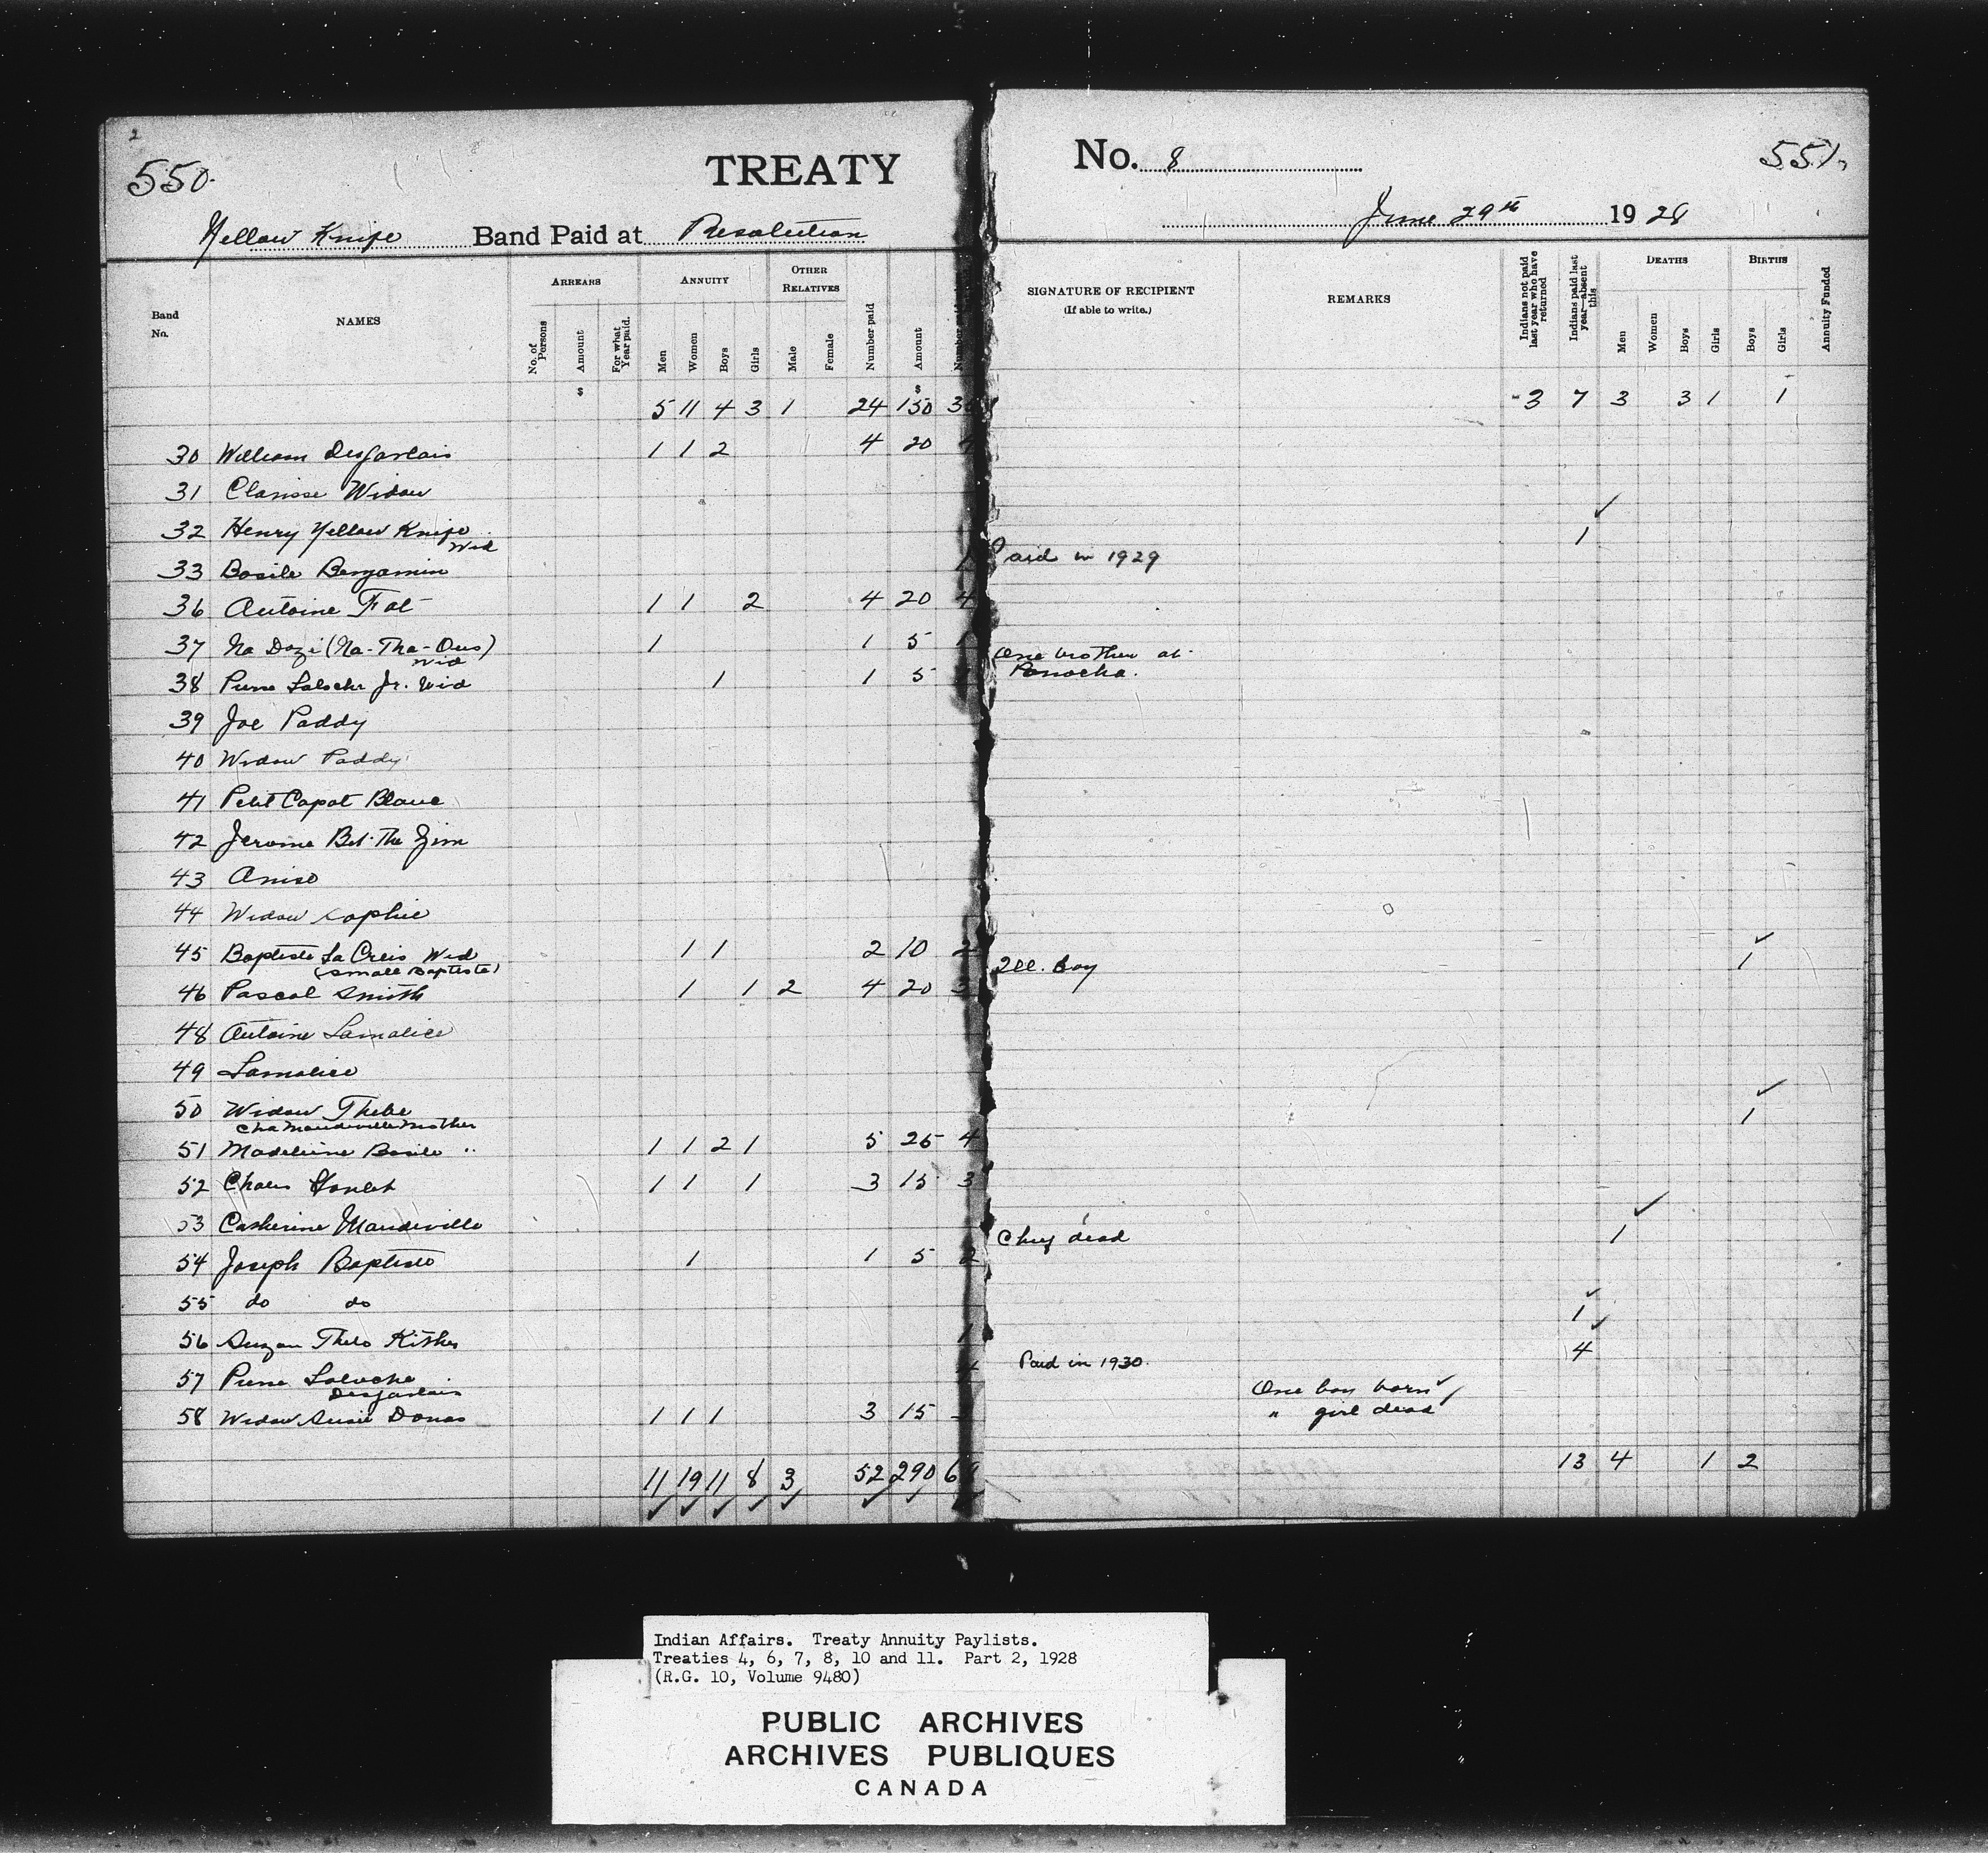 2
550.
TREATY
No. 8
551.
Yellow Knife Band Paid at Resolution
June 29th 1928
Band No.
NAMES
ARREARS
No. of Persons
Amount
For what Year paid.
ANNUITY
Men
Women
Boys
Girls
OTHER RELATIVES
Male
Female
Number paid
Amount
SIGNATURE OF RECIPIENT
(If able to write.)
REMARKS
Indians not paid last year who have returned
Indians paid last year—absent this
DEATHS
Men
Women
Boys
Girls
BIRTHS
Boys
Girls
Annuity Funded
$ $
5 11 4 3 1 24 150 3 7 3 3 1 1
30 William Desjarlais 1 1 2 4 20 4
31 Clarisse Widow
32 Henry Yellow Knife Wid 1
33 Basile Benjamin 1 Paid in 1929
36 Antoine Fat 1 1 2 4 20 4
37 Na Dazi (Na-Tha-Ous) Wid 1 1 5 1
One brother at
38 Pierre Laloche Jr. Wid 1 1 5
39 Joe Paddy
40 Widow Paddy
41 Petit Capot Blanc
42 Jerome Bet-The Zim
43 Anise
44 Widow Sophie
45 Baptiste La Creis Wid 1 1 2 10 2 1
(Small Baptiste) Ill. boy
46 Pascal Smith 1 1 2 4 20 3
48 Antoine Lamalice
49 Lamalice
50 Widow Thebe 1
Cha Mandeville Mother
51 Madeleine Basile " 1 1 2 1 5 25 4
52 Charles 1 1 1 3 15 3
53 Catherine Mandeville
Chief dead 1
54 Joseph Baptiste 1 1 5 2
55 do do 1
56 Suzan Thelo Kither 1 4
57 Pierre Laloche 4 Paid in 1930.
Desjarlais One boy born
58 Widow Susie Donas 1 1 1 3 15 " girl dead
13 4 1 2
11 19 11 8 3 52 290
Indian Affairs. Treaty Annuity Paylists.
Treaties 4, 6, 7, 8, 10 and 11. Part 2, 1928
(R.G. 10, Volume 9480)
PUBLIC ARCHIVES
ARCHIVES PUBLIQUES
CANADA